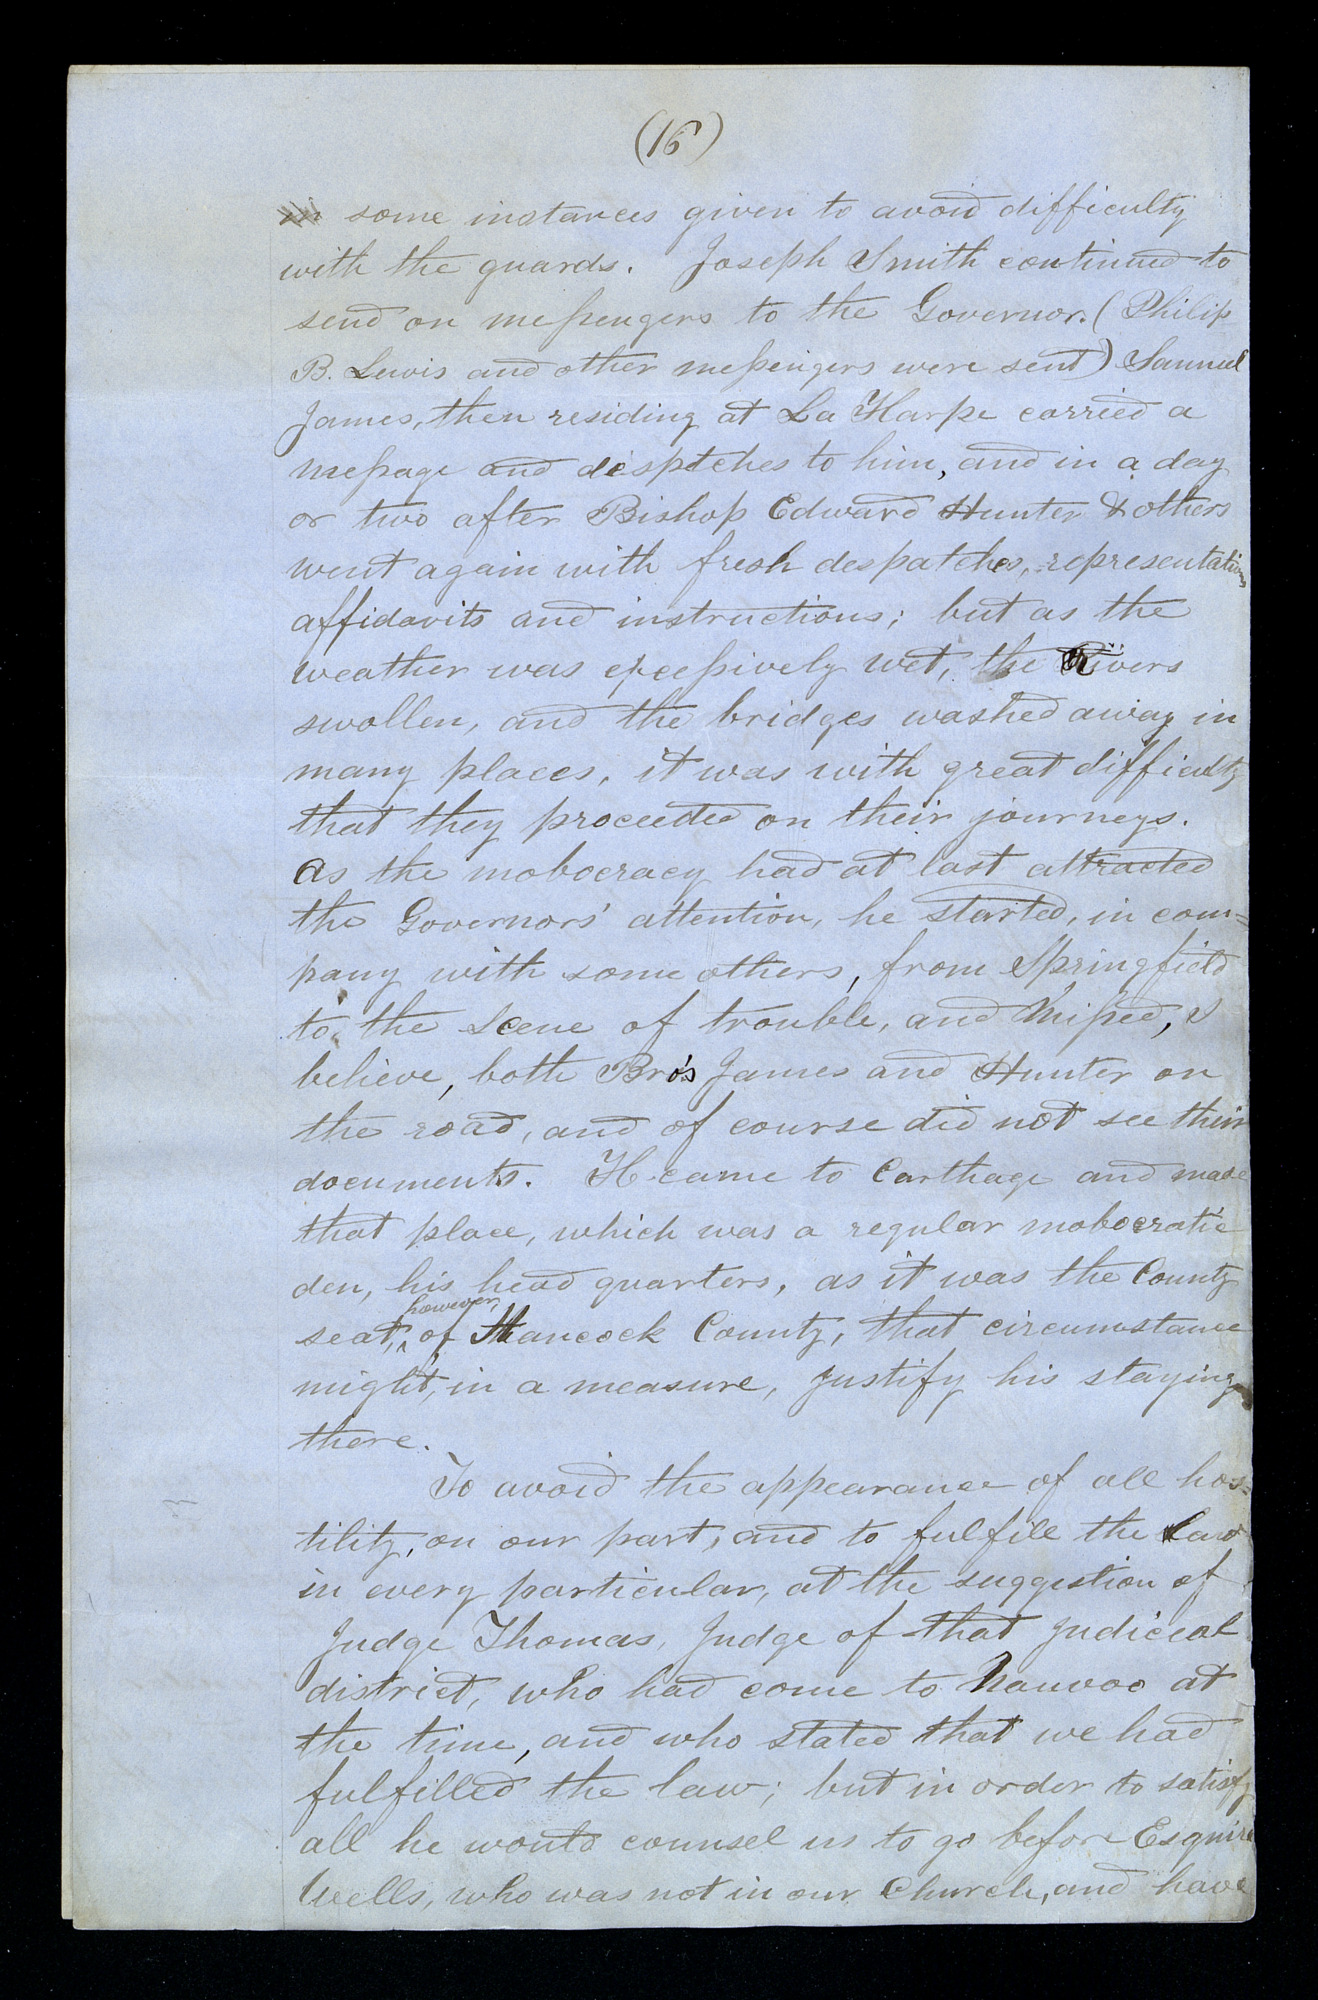 (16)
in some instances given to avoid difficulty
with the guards. Joseph Smith continued to
send on messengers to the Governor. (Philip
B. Lewis and other messengers were sent) Samuel
James, then residing at La Harpe carried a
message and despatches to him, and in a day
or two after Bishop Edward Hunter & others
went again with fresh despatches, representations
affidavits and instructions; but as the
weather was excessively wet, the Rivers
swollen, and the bridges washed away in
many places, it was with great difficulty
that they proceeded on their journeys.
As the mobocracy had at last attracted
the Governors' attention, he started, in com=
pany with some others, from Springfield
to the scene of trouble, and missed, I
believe, both Bro's James and Hunter on
the road, and of course did not see their
documents. He came to Carthage and made
that place, which was a regular mobocratic
den, his head quarters, as it was the County
seat, however, of Hancock County, that circumstance
might, in a measure, justify his staying
there.
To avoid the appearance of all hos=
tility, on our part, and to fulfill the law
in every particular, at the suggestion of
Judge Thomas, Judge of that Judicial
district, who had come to Nauvoo at
the time, and who stated that we had
fulfilled the law; but in order to satisfy
all he would counsel us to go before Esquire
Wells, who was not in our Church, and have